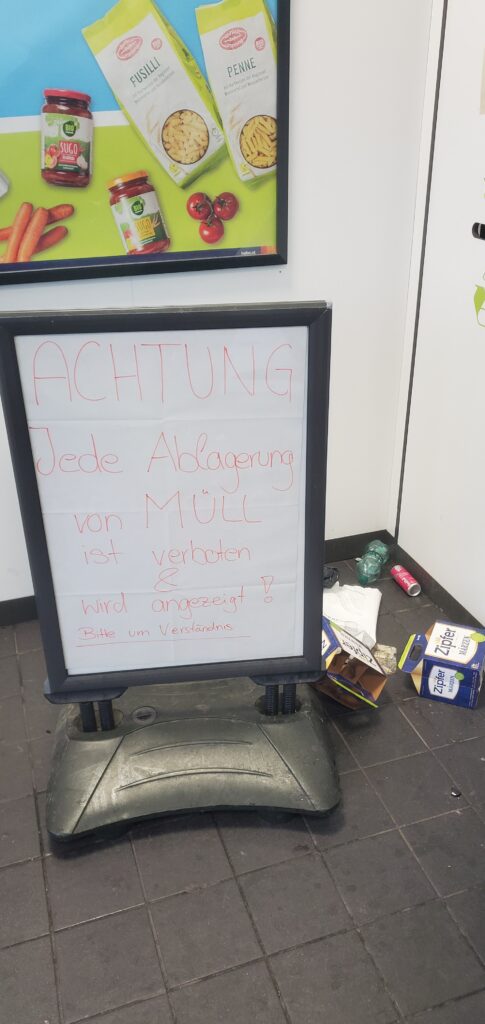 FUSILLI
PENNE
SUGO
ACHTUNG
Jede Ablagerung
von MÜLL
ist verboten
&
wird angezeigt !
Bitte um Verständnis
Zipfer
MÄRZEN
Zipfer
Zipfer
MÄRZEN